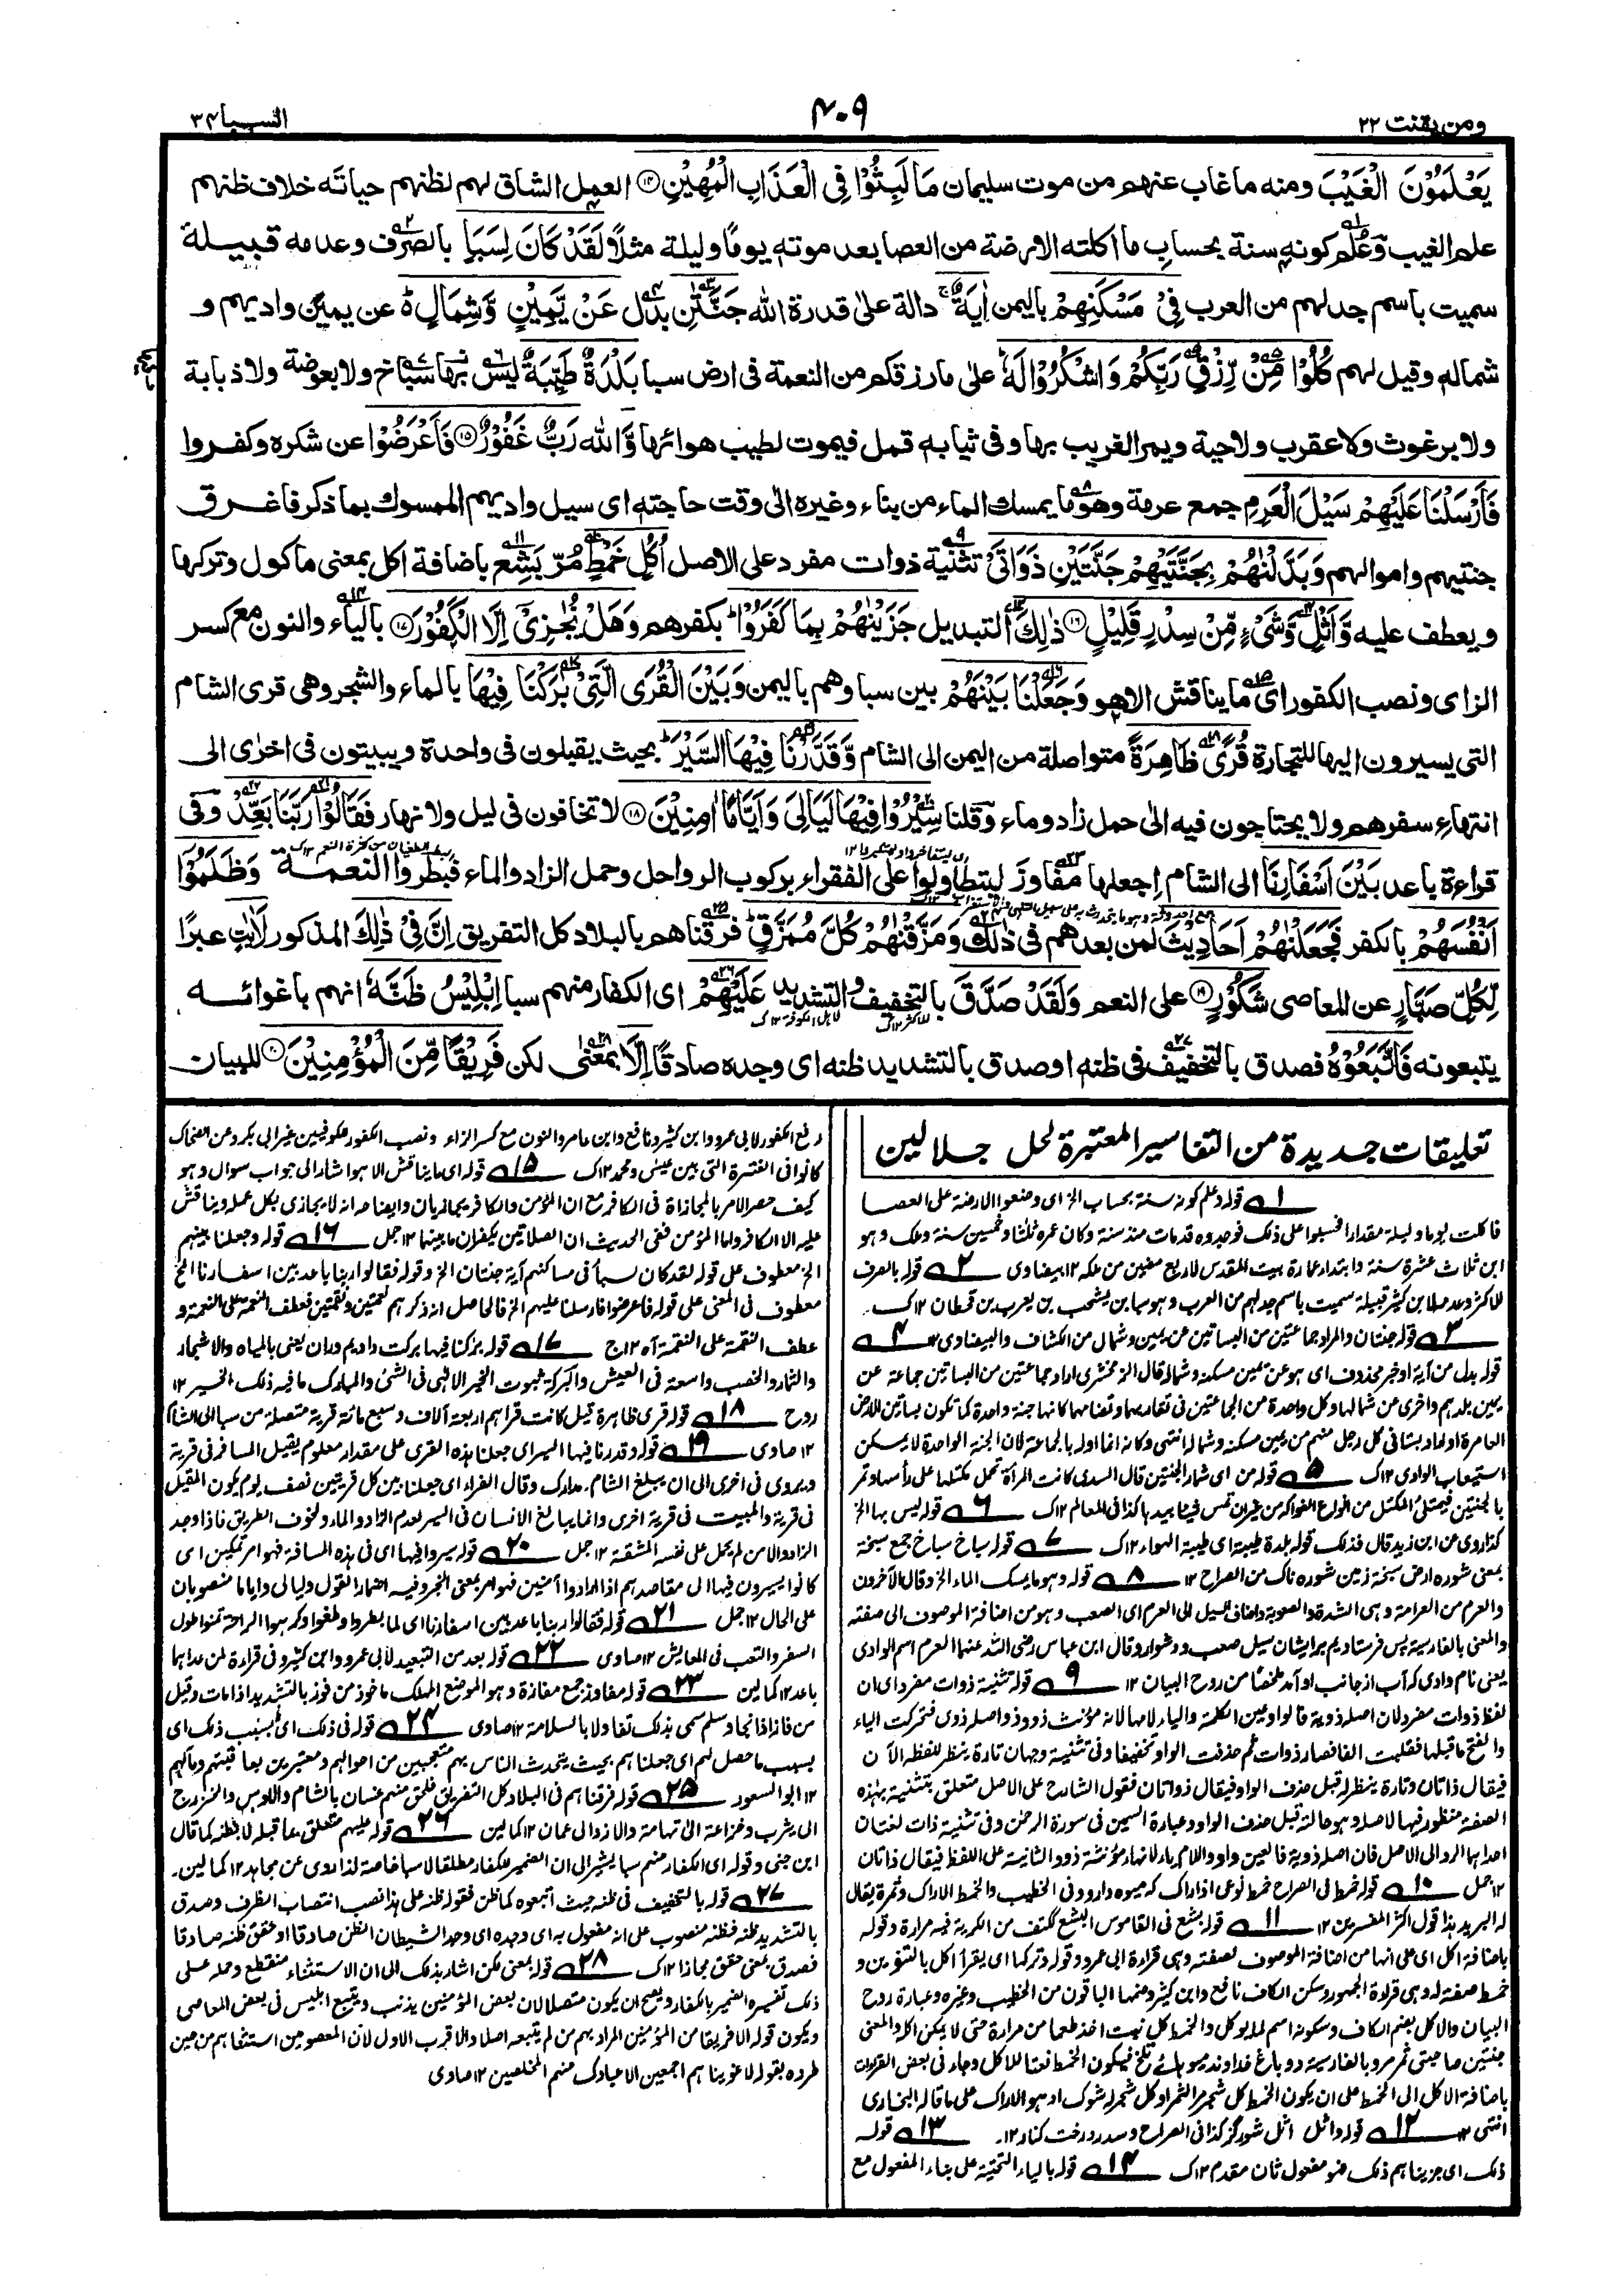 ومن يقنت ٢٢
٤٠٩
السبا ٣٤
يَعْلَمُوْنَ الْغَيْبَ ومنه ما غاب عنهم من موت سليمان مَا لَبِثُوْا فِى الْعَذَابِ الْمُهِيْنِ ⑭ العمل الشاق لهم لظنهم حياته خلاف ظنهم
علم الغيب وعُلم كونه سنة بحساب ما اكلته الارضة من العصا بعد موته يومًا وليلة مثلًا لَقَدْ كَانَ لِسَبَاٍ بالصرف وعدمه قبيلة
سميت باسم جد لهم من العرب فِىْ مَسْكَنِهِمْ باليمن اٰيَةٌ ج دالة على قدرة الله جَنَّتٰنِ بدل عَنْ يَّمِيْنٍ وَّشِمَالٍ ط عن يمين واديهم و
شماله وقيل لهم كُلُوْا مِنْ رِّزْقِ رَبِّكُمْ وَاشْكُرُوْا لَهٗ على ما رزقكم من النعمة فى ارض سبا بَلْدَةٌ طَيِّبَةٌ ليس بها سباخ ولا بعوضة ولا ذبابة
ولا برغوث ولا عقرب ولا حية ويمر الغريب بها وفى ثيابه قمل فيموت لطيب هوائها وَّالله رَبٌّ غَفُوْرٌ ⑮ فَاَعْرَضُوْا عن شكره وكفروا
فَاَرْسَلْنَا عَلَيْهِمْ سَيْلَ الْعَرِمِ جمع عرمة وهو ما يمسك الماء من بناء وغيره الى وقت حاجته اى سيل واديهم الممسوك بما ذكر فاغرق
جنتيهم واموالهم وَبَدَّلْنٰهُمْ بِجَنَّتَيْهِمْ جَنَّتَيْنِ ذَوَاتَىْ تثنية ذوات مفرد على الاصل اُكُلٍ خَمْطٍ مُرّ بَشِع باضافة اكل بمعنى ماكول وتركها
ويعطف عليه وَّاَثْلٍ وَّشَىْءٍ مِّنْ سِدْرٍ قَلِيْلٍ ⑯ ذٰلِكَ التبديل جَزَيْنٰهُمْ بِمَا كَفَرُوْا ط بكفرهم وَهَلْ نُجٰزِىْٓ اِلَّا الْكَفُوْرَ ⑰ بالياء والنون مع كسر
الزاى ونصب الكفور اى ما يناقش الا هو وَجَعَلْنَا بَيْنَهُمْ بين سبا وهم باليمن وَبَيْنَ الْقُرَى الَّتِىْ بٰرَكْنَا فِيْهَا بالماء والشجر وهى قرى الشام
التى يسيرون اليها للتجارة قُرًى ظَاهِرَةً متواصلة من اليمن الى الشام وَّقَدَّرْنَا فِيْهَا السَّيْرَ ط بحيث يقيلون فى واحدة ويبيتون فى اخرٰى الى
انتهاء سفرهم ولا يحتاجون فيه الى حمل زاد وماء وقلنا سِيْرُوْا فِيْهَا لَيَالِىَ وَاَيَّامًا اٰمِنِيْنَ ⑱ لا تخافون فى ليل ولا نهار فَقَالُوْا رَبَّنَا بَعِّدْ وفى
قراءة باعد بَيْنَ اَسْفَارِنَا الى الشام اجعلها مفاوز ليتطاولوا على الفقراء بركوب الرواحل وحمل الزاد والماء فبطروا النعمة وَظَلَمُوْٓا
اَنْفُسَهُمْ بالكفر فَجَعَلْنٰهُمْ اَحَادِيْثَ لمن بعدهم فى ذلك وَمَزَّقْنٰهُمْ كُلَّ مُمَزَّقٍ ط فرقناهم بالبلاد كل التفريق اِنَّ فِىْ ذٰلِكَ المذكور لَاٰيٰتٍ عبرًا
لِّكُلِّ صَبَّارٍ عن المعاصى شَكُوْرٍ ⑲ على النعم وَلَقَدْ صَدَّقَ بالتخفيف والتشديد عَلَيْهِمْ اى الكفار منهم سبا اِبْلِيْسُ ظَنَّهٗ انهم باغوائه
يتبعونه فَاتَّبَعُوْهُ فصدق بالتخفيف فى ظنه او صدق بالتشديد ظنه اى وجده صادقًا اِلَّا بمعنى لكن فَرِيْقًا مِّنَ الْمُؤْمِنِيْنَ ⑳ للبيان
تعليقات جديدة من التفاسير المعتبرة لحل جلالين
١ قوله وعلم كونه سنة بحساب الخ اى وضعوا الارضة على العصا
فاكلت يوما وليلة مقدارا فحسبوا على ذلك فوجدوه قد مات منذ سنة وكان عمره ثلثا وخمسين سنة وملك وهو
ابن ثلاث عشرة سنة وابتداء عمارة بيت المقدس لاربع مضين من ملكه ١٢ بيضاوى ٢ قوله بالصرف
للاكثر وعدمه لابن كثير قبيلة سميت باسم جد لهم من العرب وهو سبا بن يشجب بن يعرب بن قحطان ١٢ك
٣ قوله جنتان والمراد جماعتين من البساتين عن يمين وشمال من الكشاف والبيضاوى ١٢ ٤
قوله بدل من آية او خبر محذوف اى هو عن يمين مسكنه وشماله قال الزمخشرى اراد جماعتين من البساتين جماعة عن
يمين بلدهم واخرى من شمالها وكل واحدة من الجماعتين فى تقاربهما وتضامهما كانها جنة واحدة كما تكون بساتين البلاد
العامرة او اراد بستانى كل رجل منهم من يمين مسكنه وشماله انتهى وكانه انما اوله بالجماعة لان الجنة الواحدة لا يمكن
استيعاب الوادى ١٢ك ٥ قوله من اى ثمار الجنتين قال السدى كانت المرأة تحمل مكتلها على رأسها وتمر
بالجنتين فيمتلئ المكتل من انواع الفواكه من غيران تمس شيئا بيدها كذا فى المعالم ١٢ك ٦ قوله ليس بها الخ
كذا روى عن ابن زيد قال فذلك قوله بلدة طيبة اى طيبة الهواء ١٢ك ٧ قوله سباخ سباخ جمع سبخة
بمعنى شوره ارض سبخة زمين شوره ناك من الصراح ١٢ ٨ قوله وهو ما يمسك الماء الخ وقال الآخرون
والعرم من العرامة وهى الشدة والصعوبة واضاف السيل الى العرم اى الصعب وهو من اضافة الموصوف الى صفته
والمعنى بالفارسية پس فرستاديم بر ايشان سيل صعب ودشوار وقال ابن عباس رضى الله عنهما العرم اسم الوادى
يعنى نام وادى كه آب از جانب او آمد ملخصا من روح البيان ١٢ ٩ قوله تثنية ذوات مفرد اى ان
لفظ ذوات مفرد لان اصله ذوية فالواو عين الكلمة والياء لامها لانه مؤنث ذو وذو اصله ذوى فتحركت الياء
وانفتح ما قبلها فقلبت الفا فصار ذوات ثم حذفت الواو تخفيفا وفى تثنيته وجهان تارة ينظر للفظه الآن
فيقال ذاتان وتارة ينظر له قبل حذف الواو فيقال ذواتان فقول الشارح على الاصل متعلق بتثنية بهذه
الصفة منظور فيها لاصله وهو حالته قبل حذف الواو وعبارة السمين فى سورة الرحمٰن وفى تثنية ذات لغتان
احداهما الرد الى الاصل فان اصله ذوية فالعين واو واللام ياء لانها مؤنثة ذو والثانية على اللفظ فيقال ذاتان
١٢ جمل ١٠ قوله خمط فى الصراح خمط نوعى از اراك كه ميوه دارد وفى الخطيب والخمط الاراك وثمره يقال
له البرير هذا قول اكثر المفسرين ١٢ ١١ قوله بشع فى القاموس البشع ككتف من الكريه فيه مرارة وقوله
باضافة اكل اى على انها من اضافة الموصوف لصفته وهى قراءة ابى عمرو وقوله وتركها اى يقرأ اكل بالتنوين و
خمط صفة له وهى قراءة الجمهور وسكن الكاف نافع وابن كثير وضمها الباقون من الخطيب وغيره وعبارة روح
البيان والاكل بضم الكاف وسكونه اسم لما يوكل والخمط كل نبت اخذ طعما من مرارة حتى لا يمكن اكله والمعنى
جنتين صاحبتى ثمر مر وبالفارسية دو باغ خداوند ميوهاے تلخ فيكون الخمط نعتا للاكل وجاء فى بعض القراءات
باضافة الاكل الى الخمط على ان يكون الخمط كل شجر مر الثمر او كل شجر له شوك او هو الاراك على ما قاله البخارى
انتهى ١٢ ١٢ قوله واثل اثل شوره گز كذا فى الصراح وسدر درخت كنار ١٢ ١٣ قوله
ذلك اى جزيناهم ذلك فهو مفعول ثان مقدم ١٢ك ١٤ قوله بالياء التحتية على بناء المفعول مع
رفع الكفور لابى عمرو وابن كثير ونافع وابن عامر والنون مع كسر الزاء ونصب الكفور للكوفيين غير ابى بكر وعن الضحاك
كانوا فى الفترة التى بين عيسى ومحمد ١٢ك ١٥ قوله اى ما يناقش الا هو اشار الى جواب سوال وهو
كيف حصر الامر بالمجازاة فى الكافر مع ان المؤمن والكافر يجازيان وايضاحه انه لا يجازى بكل عمله ويناقش
عليه الا الكافر واما المؤمن ففى الحديث ان الصلاتين يكفران ما بينهما ١٢ جمل ١٦ قوله وجعلنا بينهم
الخ معطوف على قوله لقد كان لسبأ فى مساكنهم آية جنتان الخ وقوله فقالوا ربنا باعد بين اسفارنا الخ
معطوف فى المعنى على قوله فاعرضوا فارسلنا عليهم الخ فالحاصل انه ذكر لهم نعمتين ونقمتين فعطف النعمة على النعمة و
عطف النقمة على النقمة اه ١٢ ج ١٧ قوله بركنا فيها بركت داديم دران يعنى بالمياه والاشجار
والثمار والخصب واسعة فى العيش والبركة ثبوت الخير الالهى فى الشئ والمبارك ما فيه ذلك الخير ١٢
روح ١٨ قوله قرى ظاهرة قيل كانت قراهم اربعة آلاف وسبع مائة قرية متصلة من سبا الى الشام
١٢ صاوى ١٩ قوله وقدرنا فيها السير اى جعلنا هذه القرى على مقدار معلوم يقيل المسافر فى قرية
ويروى فى اخرى الى ان يبلغ الشام. مدارك وقال الفراء اى جعلنا بين كل قريتين نصف يوم يكون المقيل
فى قرية والمبيت فى قرية اخرى وانما يبالغ الانسان فى السير لعدم الزاد والماء ولخوف الطريق فاذا وجد
الزاد والامن لم يحمل على نفسه المشقة ١٢ جمل ٢٠ قوله سيروا فيها اى فى هذه المسافة فهو امر تمكين اى
كانوا يسيرون فيها الى مقاصدهم اذا ارادوا آمنين فهو امر بمعنى الخبر وفيه اضمار القول وليالى واياما منصوبان
على الحال ١٢ جمل ٢١ قوله فقالوا ربنا باعد بين اسفارنا اى لما بطروا وطغوا وكرهوا الراحة تمنوا طول
السفر والتعب فى المعايش ١٢ صاوى ٢٢ قوله بعد من التبعيد لابى عمرو وابن كثير وفى قراءة لمن عداهما
باعد ١٢ كمالين ٢٣ قوله مفاوز جمع مفازة وهو الموضع المهلك ماخوذ من فوز بالتشديد اذا مات وقيل
من فاز اذا نجا وسلم سمى بذلك تفاولا بالسلامة ١٢ صاوى ٢٤ قوله فى ذلك اى بسبب ذلك اى
بسبب ما حصل لهم اى جعلناهم بحيث يتحدث الناس بهم متعجبين من احوالهم ومعتبرين بعاقبتهم ومآلهم
١٢ ابو السعود ٢٥ قوله فرقناهم فى البلاد كل التفريق فلحق منهم غسان بالشام والاوس والخزرج
الى يثرب وخزاعة الى تهامة والازد الى عمان ١٢ كمالين ٢٦ قوله عليهم متعلق بما قبله لا بظنه كما قال
ابن جنى وقوله اى الكفار منهم سبا يشير الى ان الضمير للكفار مطلقا لا سبا خاصة لذا روى عن مجاهد ١٢ كمالين.
٢٧ قوله بالتخفيف فى ظنه حيث اتبعوه كما ظن فقوله ظنه على هذا نصب انتصاب الظرف وصدق
بالتشديد ظنه فظنه منصوب على انه مفعول به اى وجده اى وجد الشيطان الظن صادقا او حقق ظنه صادقا
فصدق بمعنى حقق مجازا ١٢ك ٢٨ قوله بمعنى لكن اشار بذلك الى ان الاستثناء منقطع وحمله على
ذلك تفسيره الضمير بالكفار ويصح ان يكون متصلا لان بعض المؤمنين يذنب ويتبع ابليس فى بعض المعاصى
ويكون قوله الا فريقا من المؤمنين المراد بهم من لم يتبعه اصلا والاقرب الاول لان المعصومين استثناهم من حين
طرده بقوله لاغوينهم اجمعين الا عبادك منهم المخلصين ١٢ صاوى